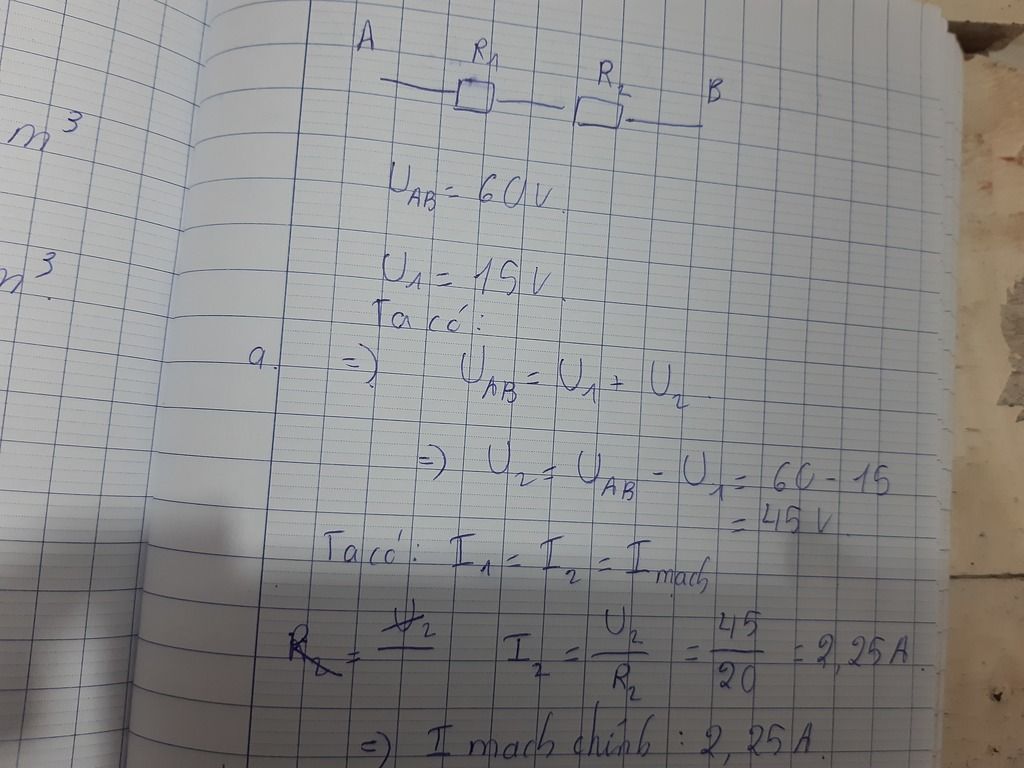 A R₁ R₂ B
m³
U_AB = 60V.
m³
U₁ = 15V.
Ta có:
a. => U_AB = U₁ + U₂
=> U₂ = U_AB - U₁ = 60 - 15
= 45V
Ta có: I₁ = I₂ = I mạch
R₂ = U₂/ I₂ = U₂/R₂ = 45/20 = 2,25A.
=) I mạch chính : 2,25A